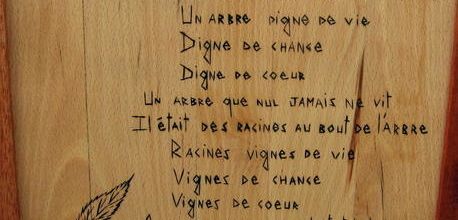 Un arbre digne de vie
Digne de chance
Digne de coeur
Un arbre que nul jamais ne vit
Il était des racines au bout de l'arbre
Racines vignes de vie
Vignes de chance
Vignes de coeur